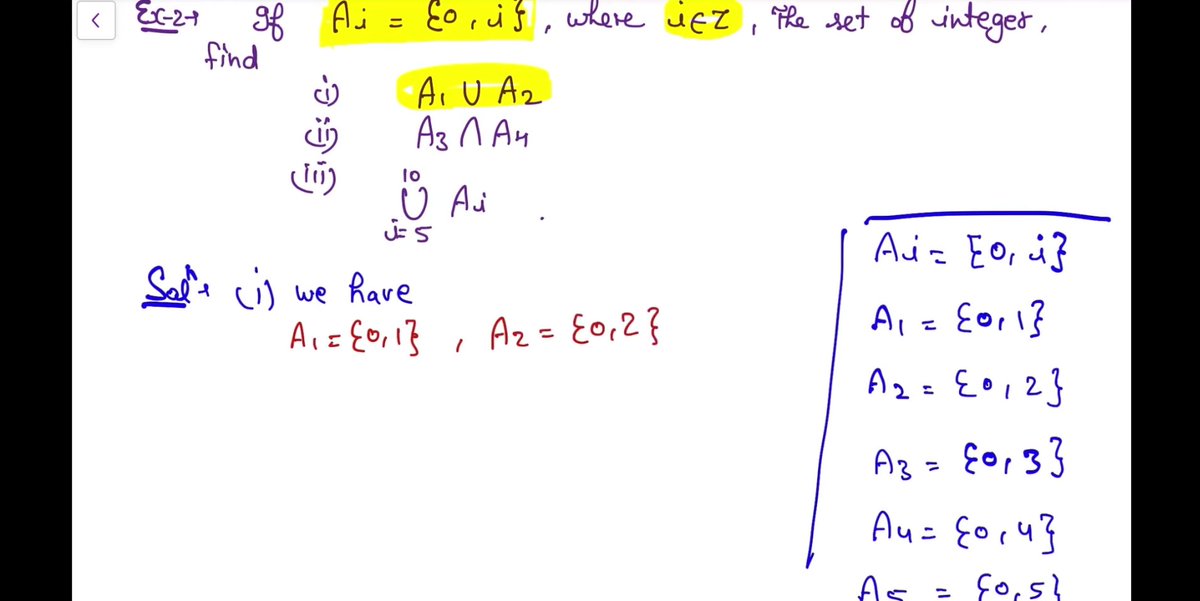 Ex-2→ If Ai = {0, i}, where i∈Z, The set of integer,
find
(i) A1 ∪ A2
(ii) A3 ∩ A4
(iii) 10
∪ Ai .
i=5
Solⁿ→ (i) we have
A1 = {0,1} , A2 = {0,2}
Ai = {0, i}
A1 = {0,1}
A2 = {0,2}
A3 = {0,3}
A4 = {0,4}
A5 = {0,5}